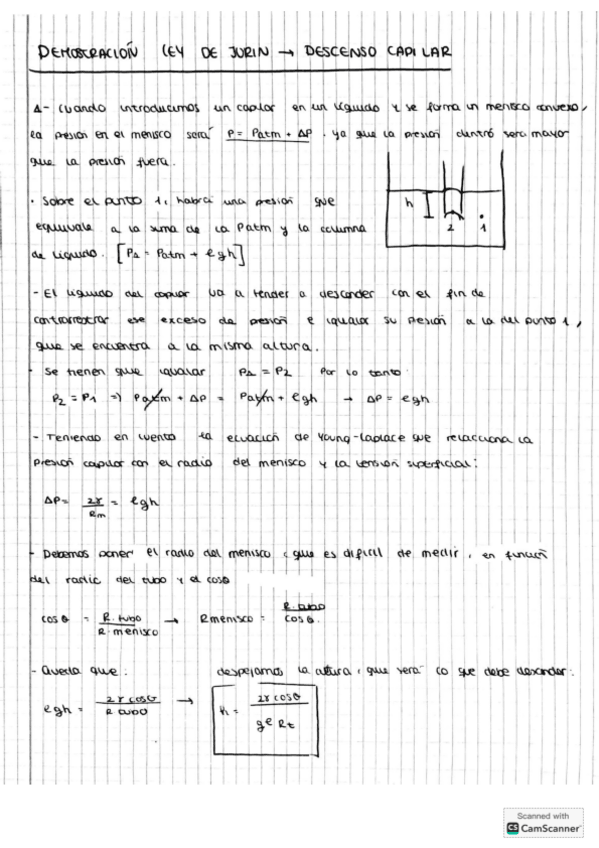 DEMOSTRACIÓN LEY DE JURIN → DESCENSO CAPILAR
1- Cuando introducimos un capilar en un líquido y se forma un menisco convexo,
la presión en el menisco será P = Patm + ΔP. ya que la presión dentro será mayor
que la presión fuera.
· Sobre el punto 1, habrá una presión que
equivale a la suma de la Patm y la columna
de líquido. [P1 = Patm + ρgh]
h
2
1
- El líquido del capilar va a tender a descender con el fin de
contrarrestrar ese exceso de presión e igualar su presión a la del punto 1,
que se encuentra a la misma altura.
- Se tienen que igualar P1 = P2 Por lo tanto:
P2 = P1 => Patm + ΔP = Patm + ρgh → ΔP = ρgh
- Teniendo en cuenta la ecuación de Young-Laplace que relacciona la
presión capilar con el radio del menisco y la tensión superficial:
ΔP = 2γ / Rm = ρgh
- Debemos poner el radio del menisco, que es difícil de medir, en función
del radio del tubo y el cosθ
cosθ = R. tubo / R. menisco → R menisco = R. tubo / cosθ.
- Queda que: despejamos la altura, que será lo que debe descender:
ρgh = 2γ cosθ / R tubo → h = 2γ cosθ / gρ Rt
Scanned with
CS CamScanner